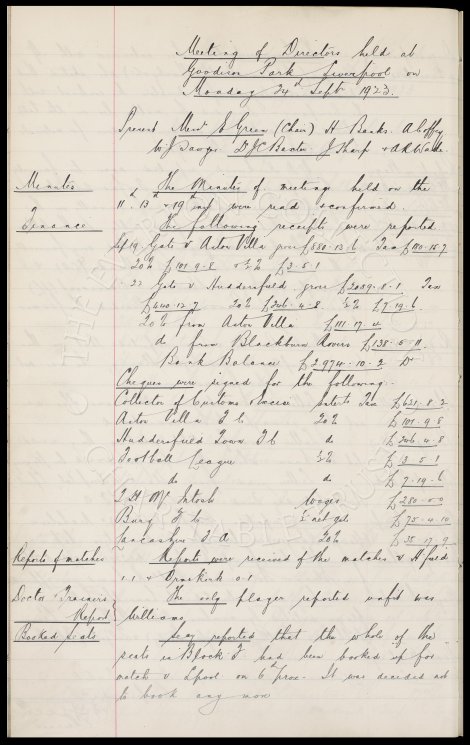 Meeting of Directors held at
Goodison Park Liverpool on
Monday 24th Septr 1923.
Present Messrs E Green (Chair) H Banks. A Coffey
W J Sawyer Dr J C Baxter J Sharp + A R Wade
Minutes
The Minutes of meetings held on the
11th 13th + 19th inst were read + confirmed.
Finance
The following receipts were reported
Sep 19 Gate v Aston Villa gross £680.13.6 Tax
20% £101.9.8 + ½% £3.5.1
" 22 Gate v Huddersfield gross £2039.8.1 Tax
£440.12.7 20% £246.4.8 ½% £7.19.6
20% from Aston Villa £111.17.4
do from Blackburn Rovers £138.5.11
Bank Balance £2974.10.2 Dr
Cheques were signed for the following:-
Collector of Customs + Excise Entertts Tax £621.8.2
Aston Villa F C 20% £101.9.8
Huddersfield Town F C do £246.4.8
Football League ½% £3.5.1
do do £7.19.6
T H McIntosh Wages £280.0.0
Bury F C ½ net gate £75.4.10
Lancashire F A 20% £35.17.9
Reports of matches
Reports were received of the matches v H'field
1.1 + Ormskirk 0.1
Doctor + Trainers
Report
The only player reported unfit was
Williams
Booked Seats
Secy reported that the whole of the
seats in Block F had been booked up for
match v L'pool on 6th prox. It was decided not
to book any more
THE EVERTON